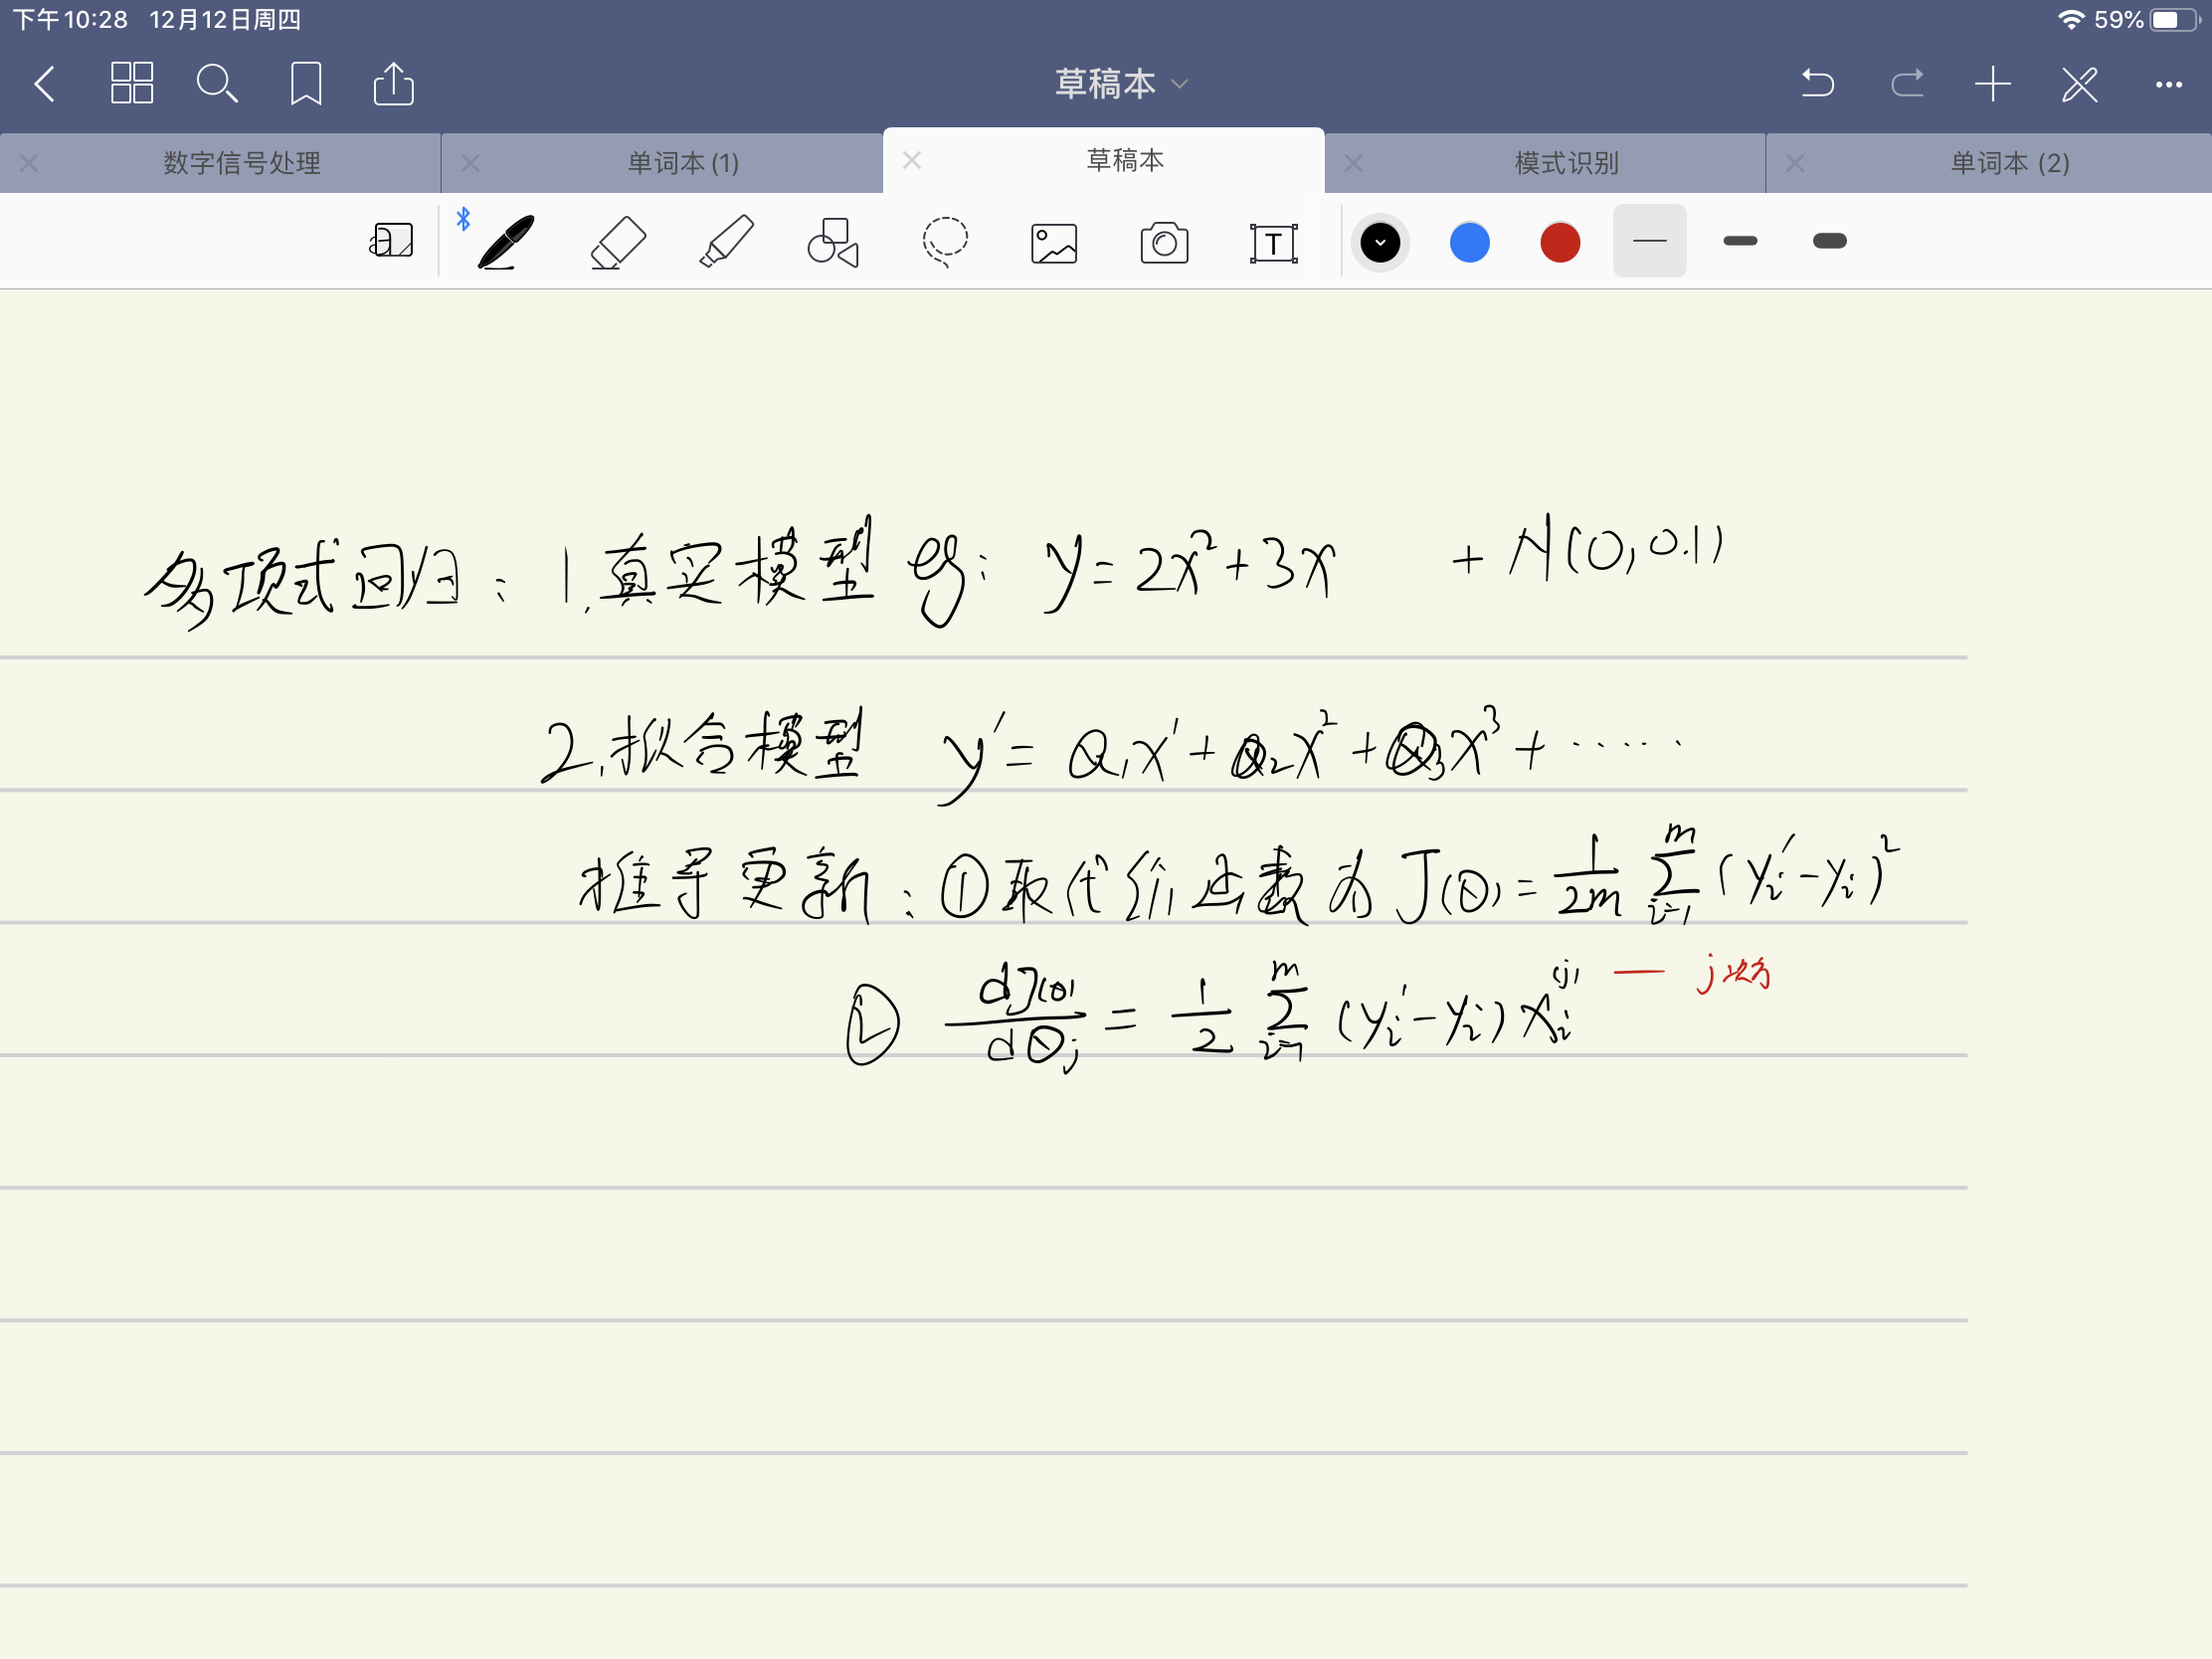 下午10:28 12月12日周四 59%
草稿本
数字信号处理 单词本 (1) 草稿本 模式识别 单词本 (2)
T
多项式回归: 1.真实模型 eg: y=2x²+3x + N(0,0.1)
2.拟合模型 y'= θ₁x¹+θ₂x²+θ₃x³+······
推导更新:①取代价函数为J(θ)=1/2m Σᵢ₌₁ᵐ (yᵢ'-yᵢ)²
② dJ(θ)/dθⱼ = 1/2 Σᵢ₌₁ᵐ (yᵢ'-yᵢ)xᵢ⁽ʲ⁾ — j